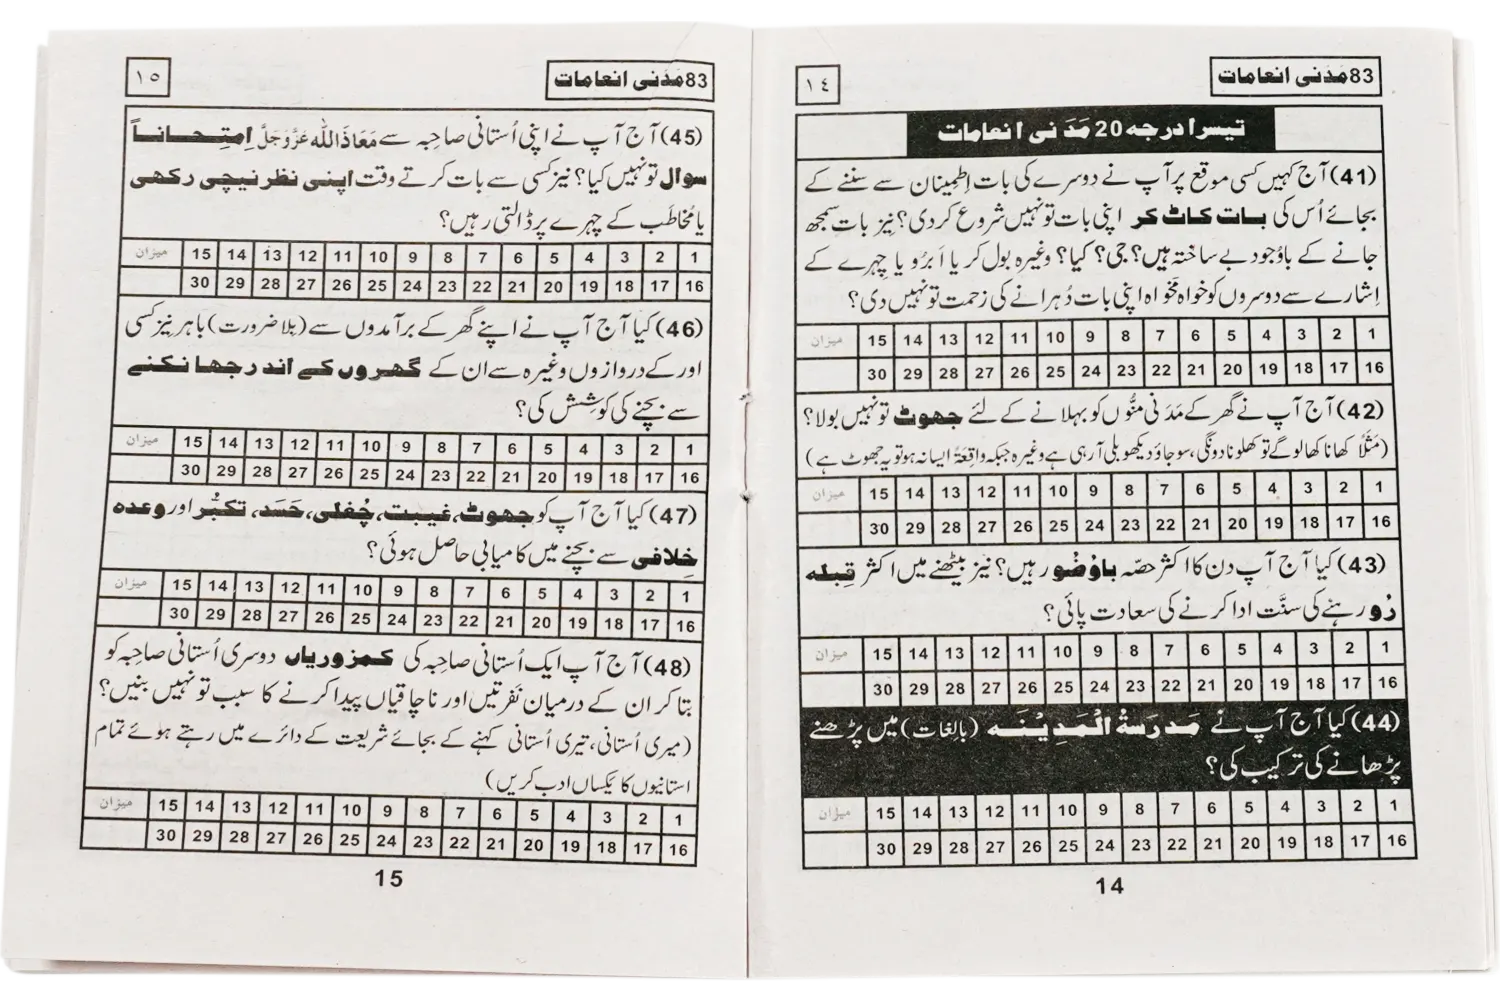 83 مَدَنی انعامات
١٤
تیسرا درجہ 20 مَدَنی انعامات
(41) آج کہیں کسی موقع پر آپ نے دوسرے کی بات اِطمِینان سے سننے کے
بجائے اُس کی بات کاٹ کر اپنی بات تو نہیں شروع کر دی؟ نیز بات سمجھ
جانے کے باوُجود بے ساختہ ہیں؟ جی؟ کیا؟ وغیرہ بول کر یا اَبرُو یا چہرے کے
اِشارے سے دوسروں کو خواہ مخواہ اپنی بات دُہرانے کی زحمت تو نہیں دی؟
1 2 3 4 5 6 7 8 9 10 11 12 13 14 15 میزان
16 17 18 19 20 21 22 23 24 25 26 27 28 29 30
(42) آج آپ نے گھر کے مَدَنی منُّوں کو بہلانے کے لئے جھوٹ تو نہیں بولا؟
(مَثَلًا کھانا کھالو گے تو کھلونا دونگی، سو جاؤ دیکھو بلی آرہی ہے وغیرہ جبکہ واقِعَۃً ایسا نہ ہو تو یہ جھوٹ ہے)
1 2 3 4 5 6 7 8 9 10 11 12 13 14 15 میزان
16 17 18 19 20 21 22 23 24 25 26 27 28 29 30
(43) کیا آج آپ دن کا اکثر حصّہ باوُضُو رہیں؟ نیز بیٹھنے میں اکثر قِبلہ
رُو رہنے کی سنَّت ادا کرنے کی سعادت پائی؟
1 2 3 4 5 6 7 8 9 10 11 12 13 14 15 میزان
16 17 18 19 20 21 22 23 24 25 26 27 28 29 30
(44) کیا آج آپ نے مَدرَسۃُ الْمَدِیْنَہ (بالغات) میں پڑھنے
پڑھانے کی ترکیب کی؟
1 2 3 4 5 6 7 8 9 10 11 12 13 14 15 میزان
16 17 18 19 20 21 22 23 24 25 26 27 28 29 30
14
83 مَدَنی انعامات
١٥
(45) آج آپ نے اپنی اُستانی صاحِبہ سے مَعَاذَاللّٰہ عَزَّوَجَلَّ اِمتِحاناً
سوال تو نہیں کیا؟ نیز کسی سے بات کرتے وقت اپنی نظر نیچی رکھی
یا مُخاطَب کے چہرے پر ڈالتی رہیں؟
1 2 3 4 5 6 7 8 9 10 11 12 13 14 15 میزان
16 17 18 19 20 21 22 23 24 25 26 27 28 29 30
(46) کیا آج آپ نے اپنے گھر کے برآمدوں سے (بلا ضرورت) باہر نیز کسی
اور کے دروازوں وغیرہ سے ان کے گھروں کے اندر جھانکنے
سے بچنے کی کوشِش کی؟
1 2 3 4 5 6 7 8 9 10 11 12 13 14 15 میزان
16 17 18 19 20 21 22 23 24 25 26 27 28 29 30
(47) کیا آج آپ کو جھوٹ، غیبت، چُغلی، حَسَد، تکبُّر اور وعدہ
خِلافی سے بچنے میں کامیابی حاصل ہوئی؟
1 2 3 4 5 6 7 8 9 10 11 12 13 14 15 میزان
16 17 18 19 20 21 22 23 24 25 26 27 28 29 30
(48) آج آپ ایک اُستانی صاحِبہ کی کمزوریاں دوسری اُستانی صاحِبہ کو
بتا کر ان کے درمیان نَفرتیں اور ناچاقیاں پیدا کرنے کا سبب تو نہیں بنیں؟
(میری اُستانی، تیری اُستانی کہنے کے بجائے شریعت کے دائرے میں رہتے ہوئے تمام
استانیوں کا یکساں ادب کریں)
1 2 3 4 5 6 7 8 9 10 11 12 13 14 15 میزان
16 17 18 19 20 21 22 23 24 25 26 27 28 29 30
15